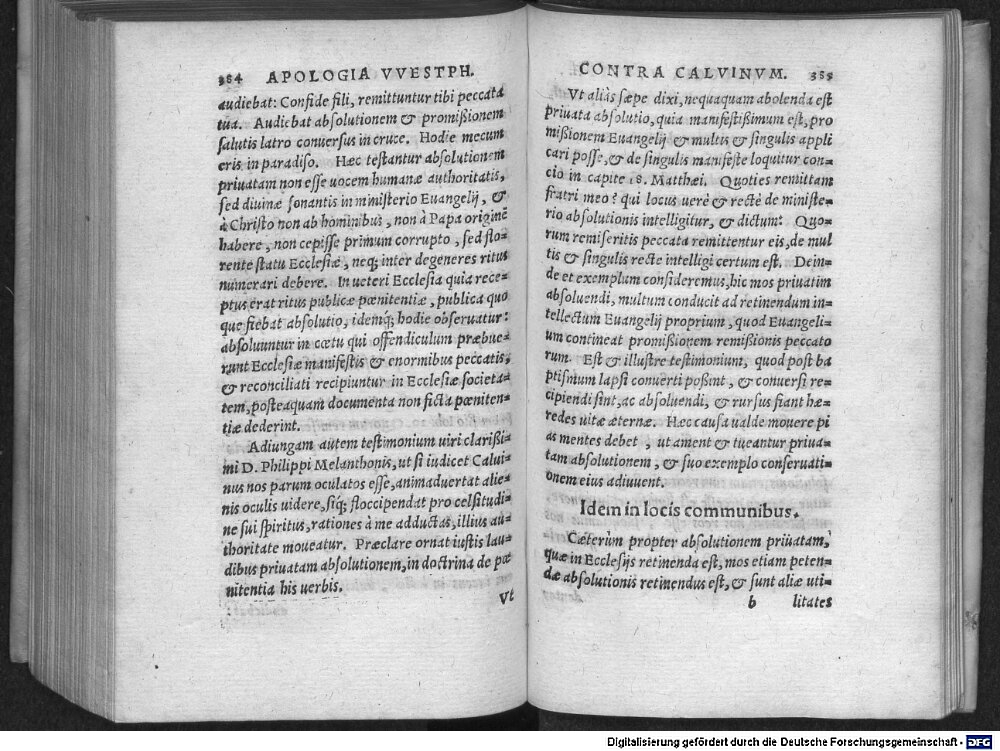 384 APOLOGIA VVESTPH.
audiebat: Confide fili, remittuntur tibi peccata
tua. Audiebat absolutionem & promißionem
salutis latro conuersus in cruce. Hodie mecum
eris in paradiso. Hæc testantur absolutionem
priuatam non esse uocem humanæ authoritatis,
sed diuinæ sonantis in ministerio Euangelij, &
à Christo non ab hominibus, non à Papa originẽ
habere, non cepisse primum corrupto, sed flo-
rente statu Ecclesiæ, neq; inter degeneres ritus
numerari debere. In ueteri Ecclesia quia rece-
ptus erat ritus publicæ pœnitentiæ, publica quo
que fiebat absolutio, idemq; hodie obseruatur:
absoluuntur in cœtu qui offendiculum præbue-
runt Ecclesiæ manifestis & enormibus peccatis,
& reconciliati recipiuntur in Ecclesiæ societa-
tem, posteaquam documenta non ficta pœniten-
tiæ dederint.
Adiungam autem testimonium uiri clarißi-
mi D. Philippi Melanthonis, ut si iudicet Calui-
nus nos parum oculatos esse, animaduertat alie-
nis oculis uidere, siq; floccipendat pro celsitudi-
ne sui spiritus, rationes à me adductas, illius au-
thoritate moueatur. Præclare ornat iustis lau-
dibus priuatam absolutionem, in doctrina de pœ
nitentia his uerbis.
Vt
CONTRA CALVINVM. 385
Vt aliàs sæpe dixi, nequaquam abolenda est
priuata absolutio, quia manifestißimum est, pro
mißionem Euangelij & multis & singulis appli
cari posse, & de singulis manifeste loquitur con-
cio in capite 18. Matthæi. Quoties remittam
fratri meo? qui locus uerè & rectè de ministe-
rio absolutionis intelligitur, & dictum: Quo-
rum remiseritis peccata remittentur eis, de mul
tis & singulis recte intelligi certum est. Dein-
de et exemplum consideremus, hic mos priuatim
absoluendi, multum conducit ad retinendum in-
tellectum Euangelij proprium, quod Euangeli-
um contineat promißionem remißionis peccato
rum. Est & illustre testimonium, quod post ba
ptismum lapsi conuerti poßint, & conuersi re-
cipiendi sint, ac absoluendi, & rursus fiant hæ-
redes uitæ æternæ. Hæc causa ualde mouere pi
as mentes debet, ut ament & tueantur priua-
tam absolutionem, & suo exemplo conseruati-
onem eius adiuuent.
Idem in locis communibus.
Cæterùm propter absolutionem priuatam,
quæ in Ecclesijs retinenda est, mos etiam peten-
dæ absolutionis retinendus est, & sunt aliæ uti-
b litates
Digitalisierung gefördert durch die Deutsche Forschungsgemeinschaft - DFG